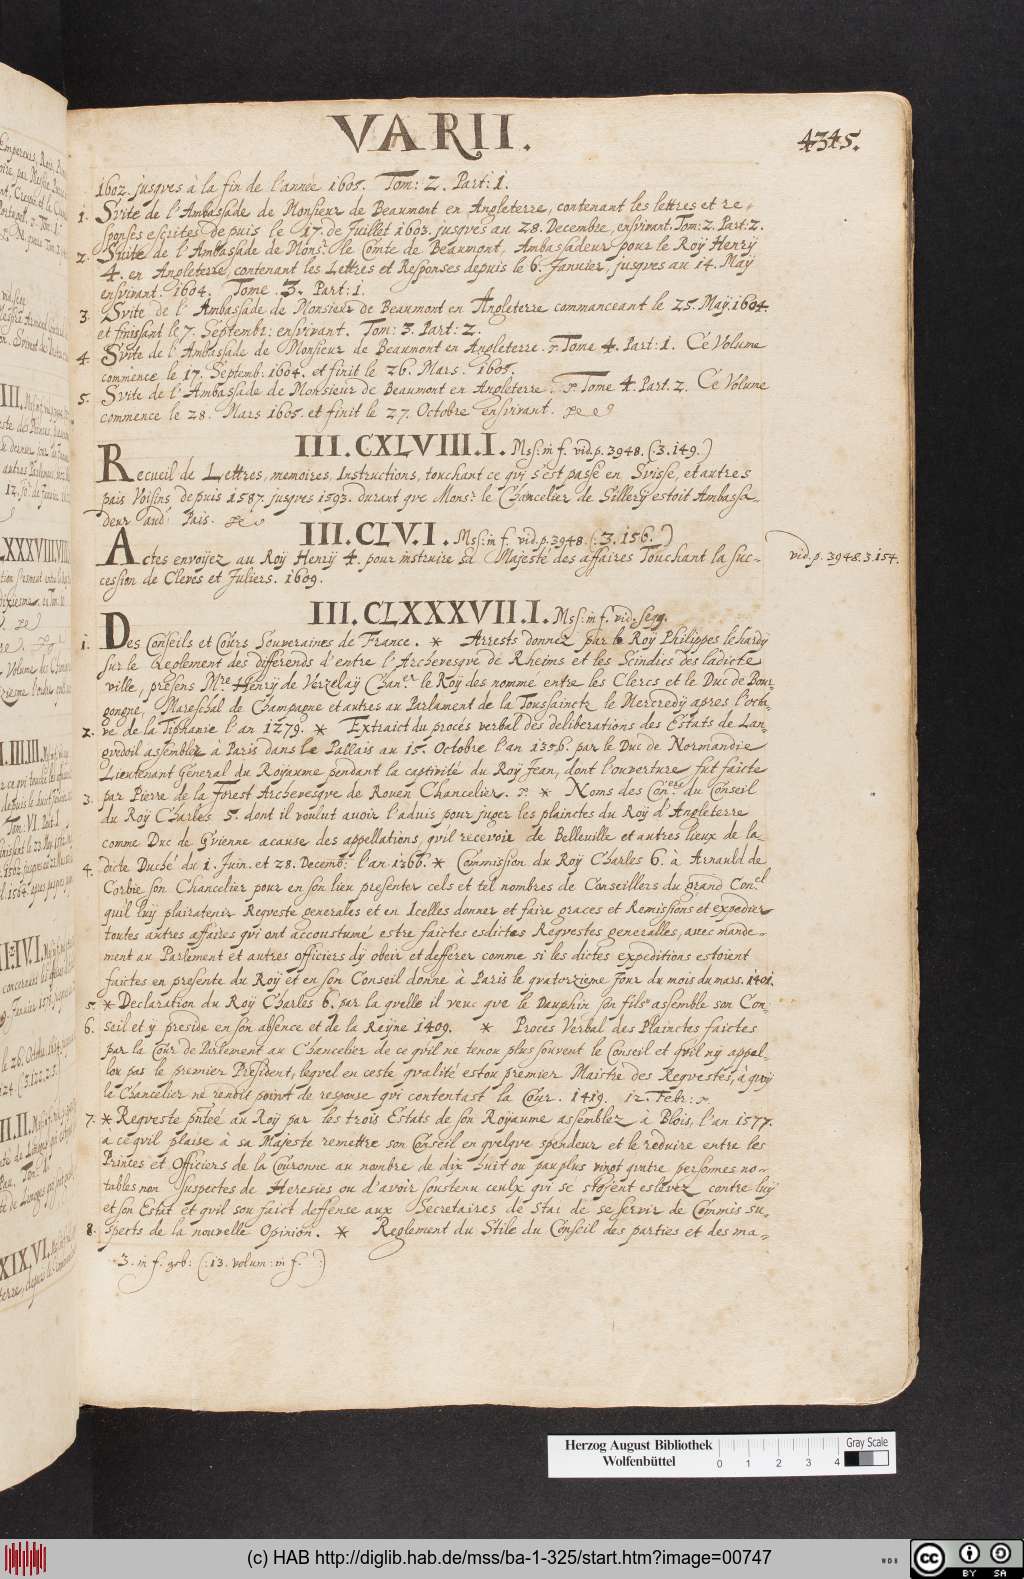 VARII.
4345.
1602. jusques à la fin de l'année 1605. Tom: 2. Part: 1.
1. Svite de l'Ambassade de Monsieur de Beaumont en Angleterre, contenant les lettres et re-
sponses escrites depuis le 17. de Juillet 1603. jusques au 28. Decembre, ensuivant. Tom: 2. Part: 2.
2. Suite de l'Ambassade de Monsr. le Comte de Beaumont, Ambassadeur pour le Roÿ Henrÿ
4. en Angleterre, contenant les Lettres et Responses depuis le 6. Janvier, jusques au 14. Maÿ
ensuivant. 1604. Tome. 3. Part: 1.
3. Svite de l'Ambassade de Monsieur de Beaumont en Angleterre commanceant le 25. Maÿ. 1604.
et finissant le 7. Septembr: ensuivant. Tom: 3. Part: 2.
4. Svite de l'Ambassade de Monsieur de Beaumont en Angleterre. Tome 4. Part: 1. Ce Volume
commence le 17. Septemb: 1604. et finit le 26. Mars. 1605.
5. Svite de l'Ambassade de Monsieur de Beaumont en Angleterre. Tome 4. Part. 2. Ce Volume
commence le 28. Mars 1605. et finit le 27. Octobre ensuivant.
III. CXLVIII. I. Mss: in f. vid. p. 3948. (3. 149.)
Recueil de Lettres, memoires, Instructions, touchant ce qui s'est passé en Svisse, et autres
pais Voisins depuis 1587. jusques 1593. durant que Monsr. le Chancelier de Sillerÿ estoit Ambassa-
deur aud: Pais.
III. CLV. I. Mss: in f. vid. p. 3948. (3. 156.)
Actes envoÿez au Roÿ Henrÿ 4. pour instruire sa Majesté des affaires Touchant la suc-
cession de Cleves et Juliers. 1609.
vid. p. 3948. 3. 154.
III. CLXXXVII. I. Mss: in f. vid. seqq.
1. Des Conseils et Cours Souveraines de France. * Arrests donnez par le Roÿ Philippes le hardÿ
sur le Reglement des differends d'entre l'Archevesque de Rheims et les Scindics des ladicte
ville, presens Mre. Henrÿ de Verzelaÿ Chaner. le Roÿ des nomme entre les Clercs et le Duc de Bour-
gongne, Mareschal de Champagne et autres au Parlament de la Toussainctz le Mercredÿ apres l'octa-
2. ve de la Tiphanie l'an 1279. * Extraict du procés verbal des deliberations des Estats de Lan-
guedoil assemblez à Paris dans le Pallais au 15. Octobre l'an 1356. par le Duc de Normandie
Lieutenant General du Roÿaume pendant la captivité du Roÿ Jean, dont l'ouverture fut faicte
3. par Pierre de la Forest Archevesque de Rouen Chancelier. * Noms des Coners. du Conseil
du Roÿ Charles 5. dont il voulut avoir l'advis pour juger les plainctes du Roÿ d'Angleterre
comme Duc de Gvienne a cause des appellations, qvil recevoie de Belleuille et autres lieux de la
4. dicte Duché du 1. Juin. et 28. Decemb: l'an 1366. * Commission du Roÿ Charles 6. à Arnauld de
Corbie son Chancelier pour en son lieu presenter cels et tel nombres de Conseillers du grand Concl
quil luÿ plairatenir Reqveste generales et en Icelles donner et faire graces et Remissions et expedier
toutes autres affaires qvi ont accoustumé estre faictes esdictes Reqvestes generalles, avec mande-
ment au Parlement et autres officiers dÿ obeir et defferer comme si les dictes expeditions estoient
faictes en presente du Roÿ et en son Conseil donné à Paris le qvatorzieme Jour du mois du mars. 1401.
5. * Declaration du Roÿ Charles 6. par la qvelle il veuc qve le Dauphin son fils assemble son Con-
6. seil et ÿ preside en son absence et de la Reÿne 1409. * Proces Verbal des Plainctes faictes
par la Cour de Parlement au Chancelier de ce qvil ne tenou plus souvent le Conseil et qvil nÿ appel-
lou pas le premier President, leqvel en ceste qvalité estou premier Maistre des Reqvestes, à qvoÿ
le Chancelier ne rendit point de response qvi contentast la Cour. 1419. 12. Febr:
7. * Reqveste pntee au Roÿ par les trois Estats de son Roÿaume assemblez à Blois, l'an 1577.
à ce qvil plaise à sa Majeste remettre son Conseil en qvelqve spendeur et le reduire entre les
Princes et Officiers de la Couronne au nombre de dix huit ou pauplus vingt qvatre personnes no-
tables non suspectes de Heresies ou d'avoir soustenu ceulx qvi se stoient eslevez contre luÿ
et son Estat et qvil sou faict deffense aux Secretaires de Stat de se servir de Commis su-
8. spects de la nouvelle Opinion. * Reglement du Stile du Conseil des parties et des ma-
3. in f. (: 13. volum: in f. :)
Herzog August Bibliothek
Wolfenbüttel
0 1 2 3 4
Gray Scale
(c) HAB http://diglib.hab.de/mss/ba-1-325/start.htm?image=00747
WDB
cc BY SA